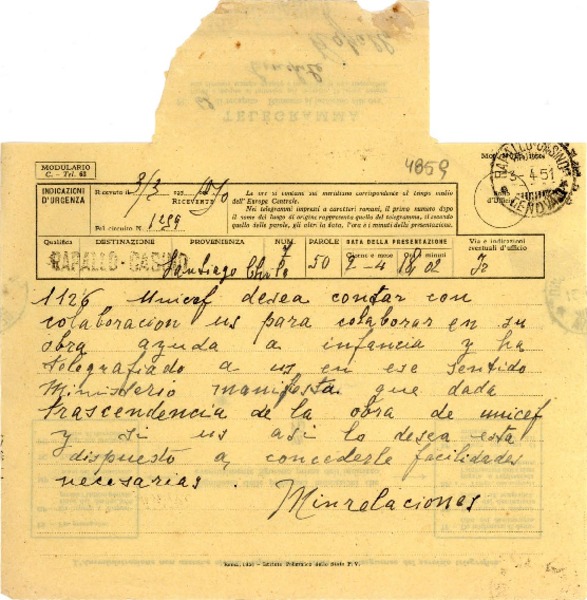 TELEGRAMMA
4859
MODULARIO
C. - Tel. 63
INDICAZIONI
D'URGENZA
Ricevuto il 3/3
RICEVENTE
Pel circuito N. 1299
Le ore si contano sul meridiano corrispondente al tempo medio
dell'Europa Centrale.
Nei telegrammi impressi a caratteri romani, il primo numero dopo
il nome del luogo di origine rappresenta quello del telegramma, il secondo
quello delle parole, gli altri la data, l'ora e i minuti della presentazione.
RAPALLO-CASINO
3-4.51
GENOVA
Qualifica
DESTINAZIONE
PROVENIENZA
NUM.
PAROLE
DATA DELLA PRESENTAZIONE
Giorno e mese
minuti
Via e indicazioni
eventuali d'ufficio
RAPALLO-CASINO
Santiago Chile
7
50
2-4
02
1126 Unicef desea contar con
colaboracion us para colaborar en su
obra ayuda a infancia y ha
telegrafiado a us en ese sentido
Ministerio manifesta que dada
trascendencia de la obra de unicef
y si us asi lo desea esta
dispuesto a concederle facilidades
necesarias
Minrelaciones
Roma, 1950 - Istituto Poligrafico dello Stato P. V.